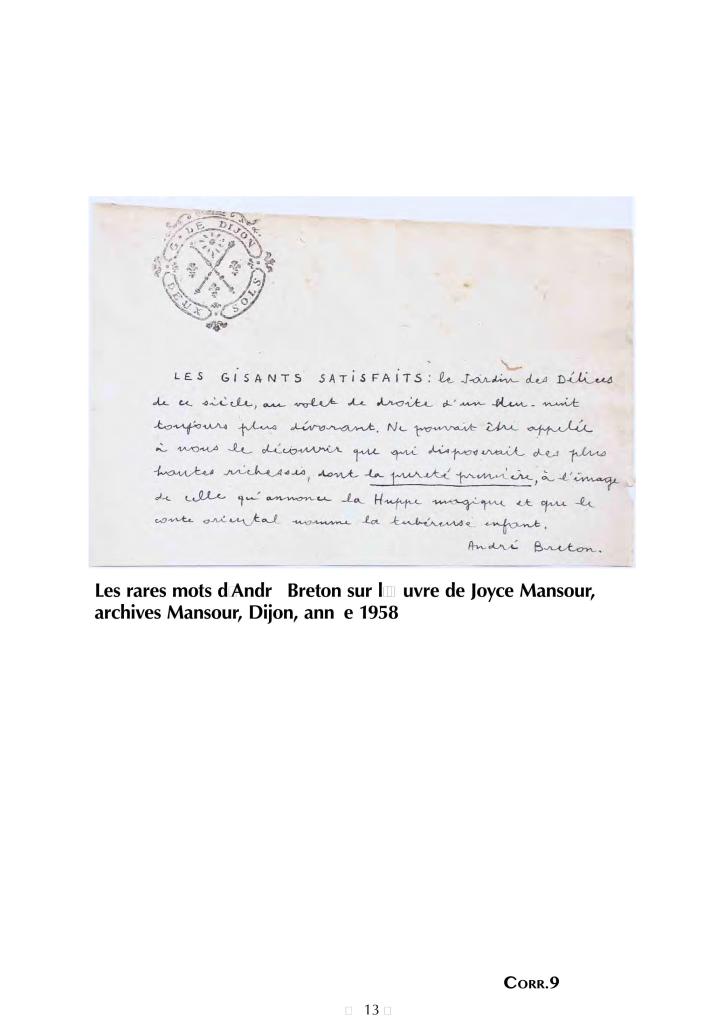 G. DE DIJON
DEUX SOLS
LES GISANTS SATISFAITS : le Jardin des Délices
de ce siècle, au volet de droite d'un bleu-nuit
toujours plus dévorant. Ne pouvait être appelée
à nous le découvrir que qui disposerait des plus
hautes richesses, dont la pureté première, à l'image
de celle qu'annonce la Huppe magique et que le
conte oriental nomme la tubéreuse enfant.
André Breton.
Les rares mots d Andr Breton sur l uvre de Joyce Mansour,
archives Mansour, Dijon, ann e 1958
CORR.9
13